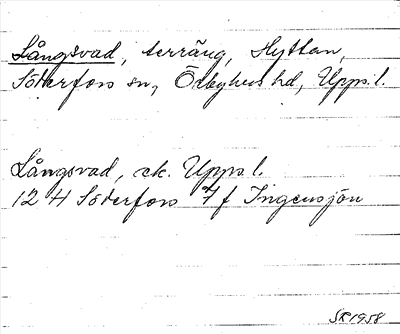 Långsvad, terräng, Hyttan,
Söderfors sn, Örbyhus hd, Upps. l.
Långsvad, ek. Upps l.
12 H Söderfors 7 f Ingensjön
SR 1958